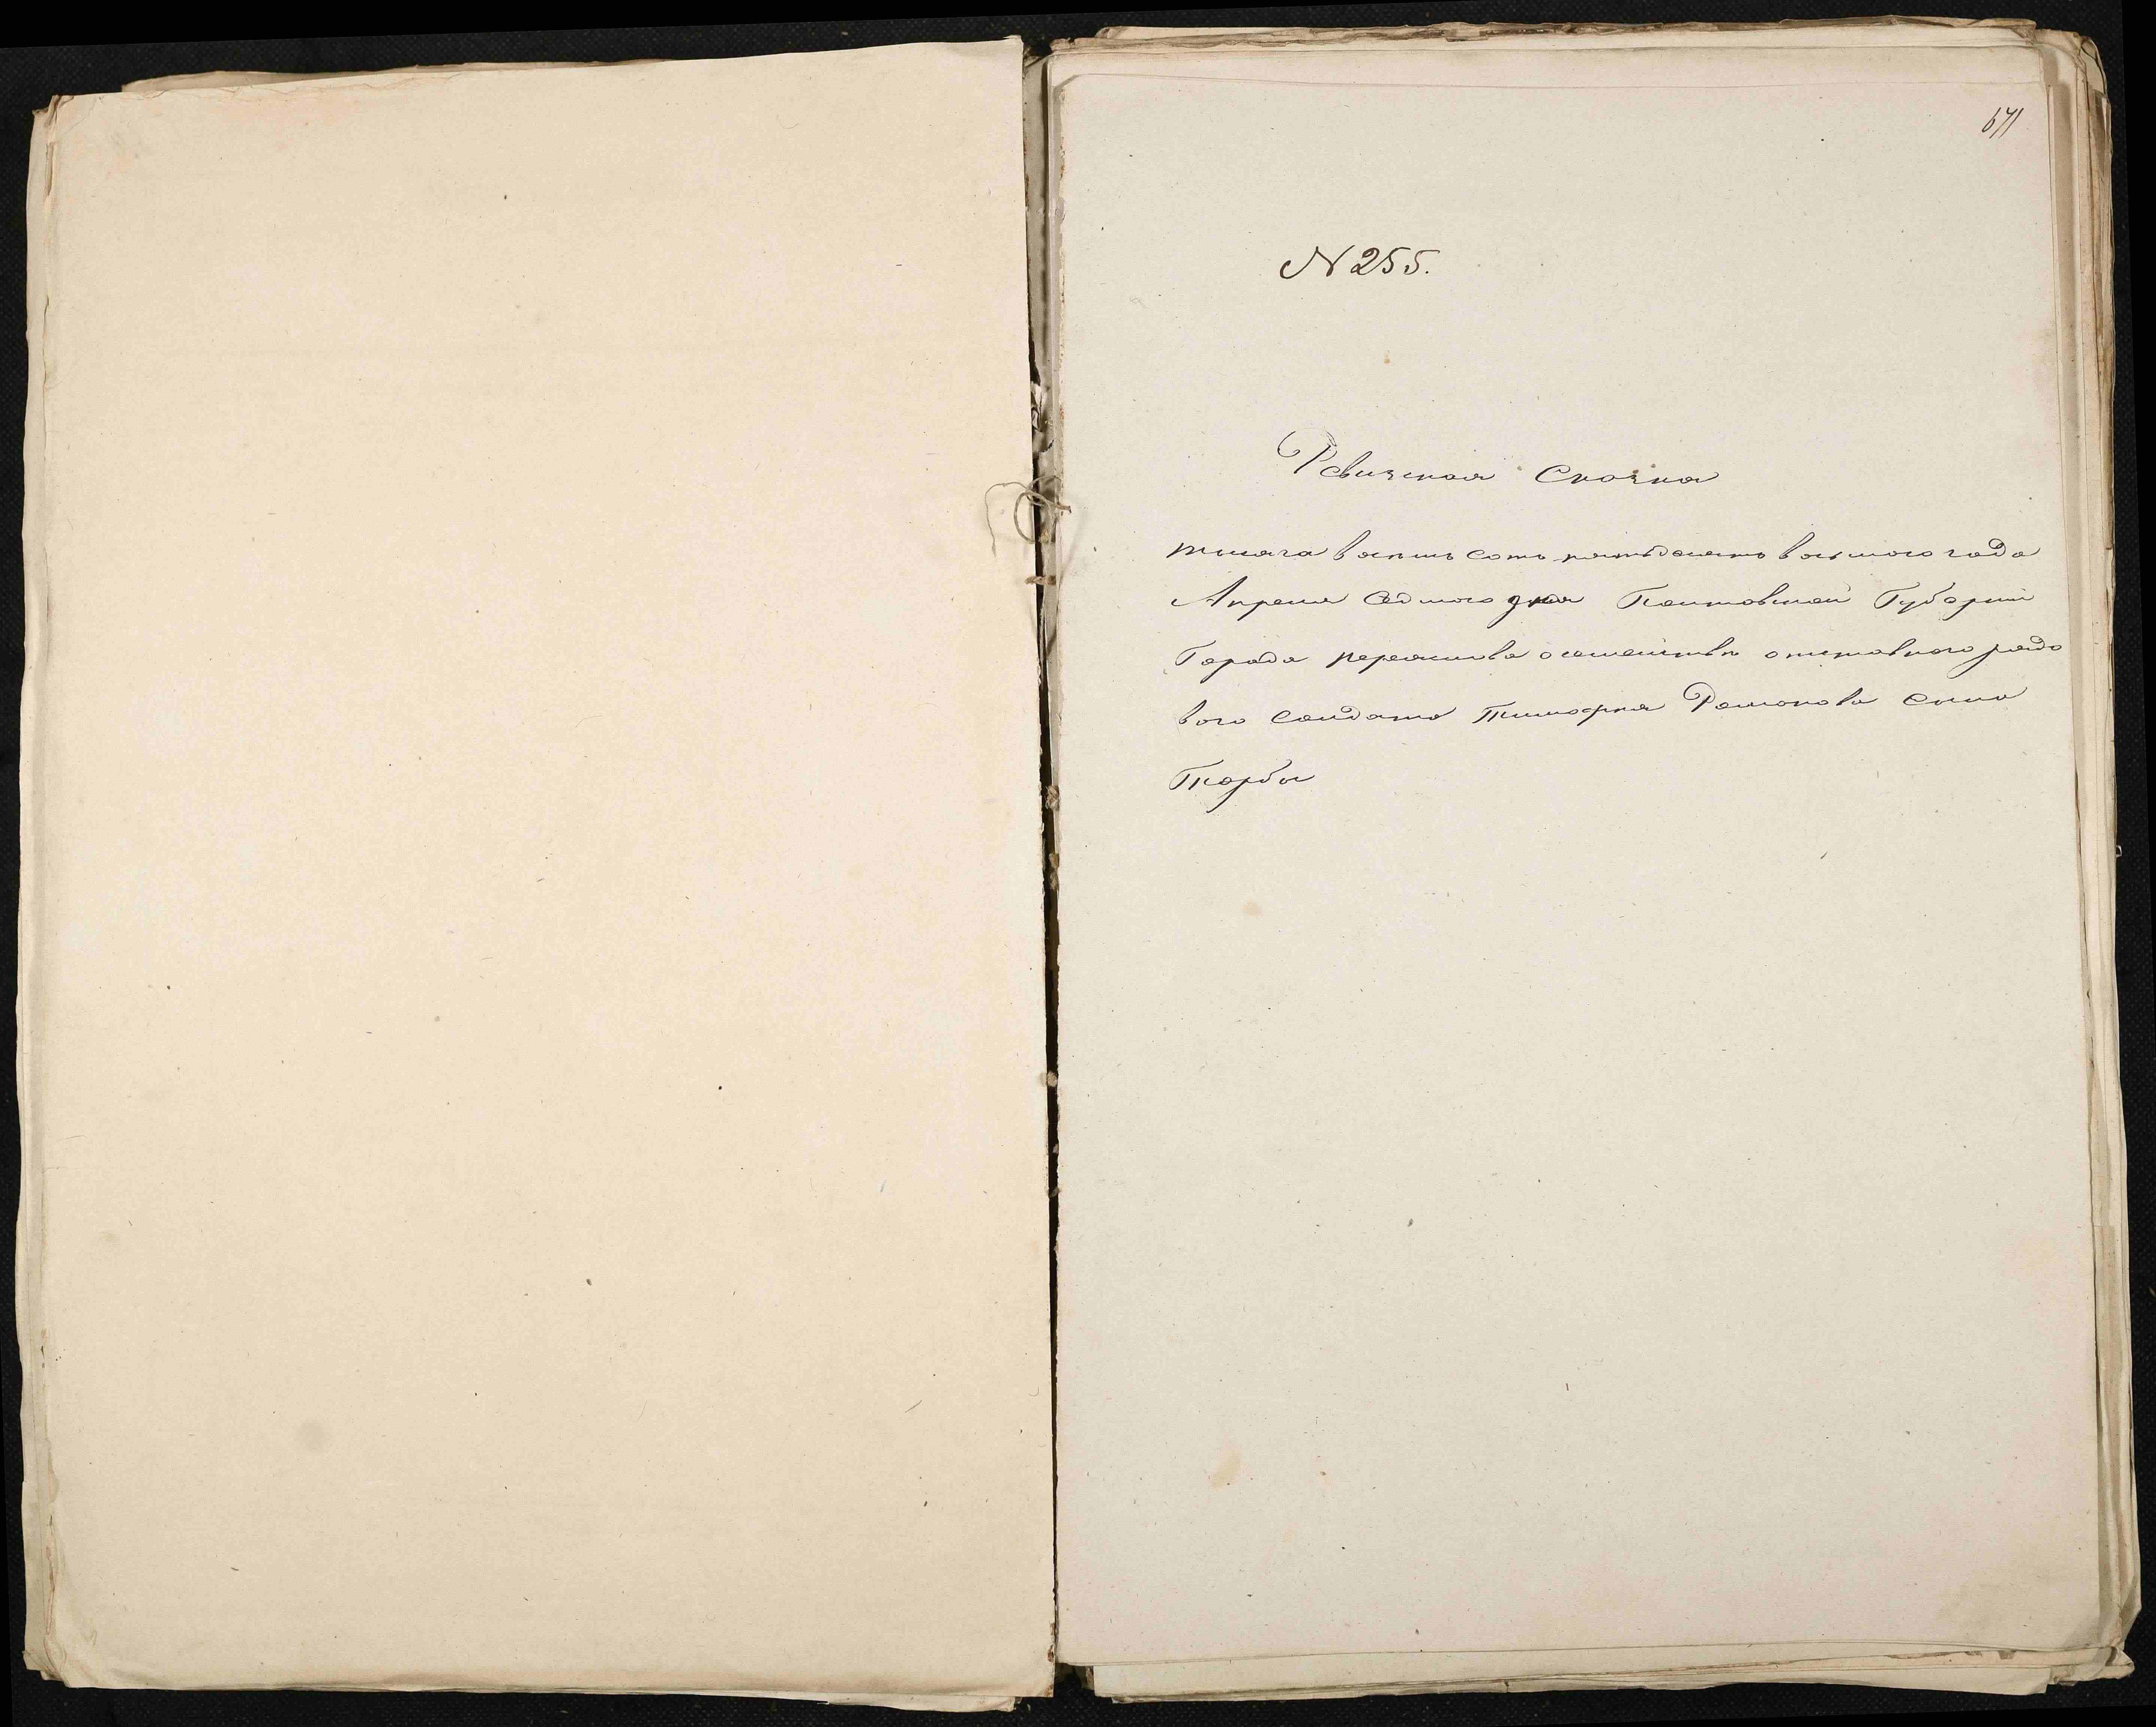 671
N 255.
Ревизская Сказка
тысяча восемь сотъ пятьдесятъ восьмого года
Апреля Седмого дня Полтовской Губернии
Города переяслова о семействе отставного рядо
вого Солдата Тимофея Романова сына
Торбы